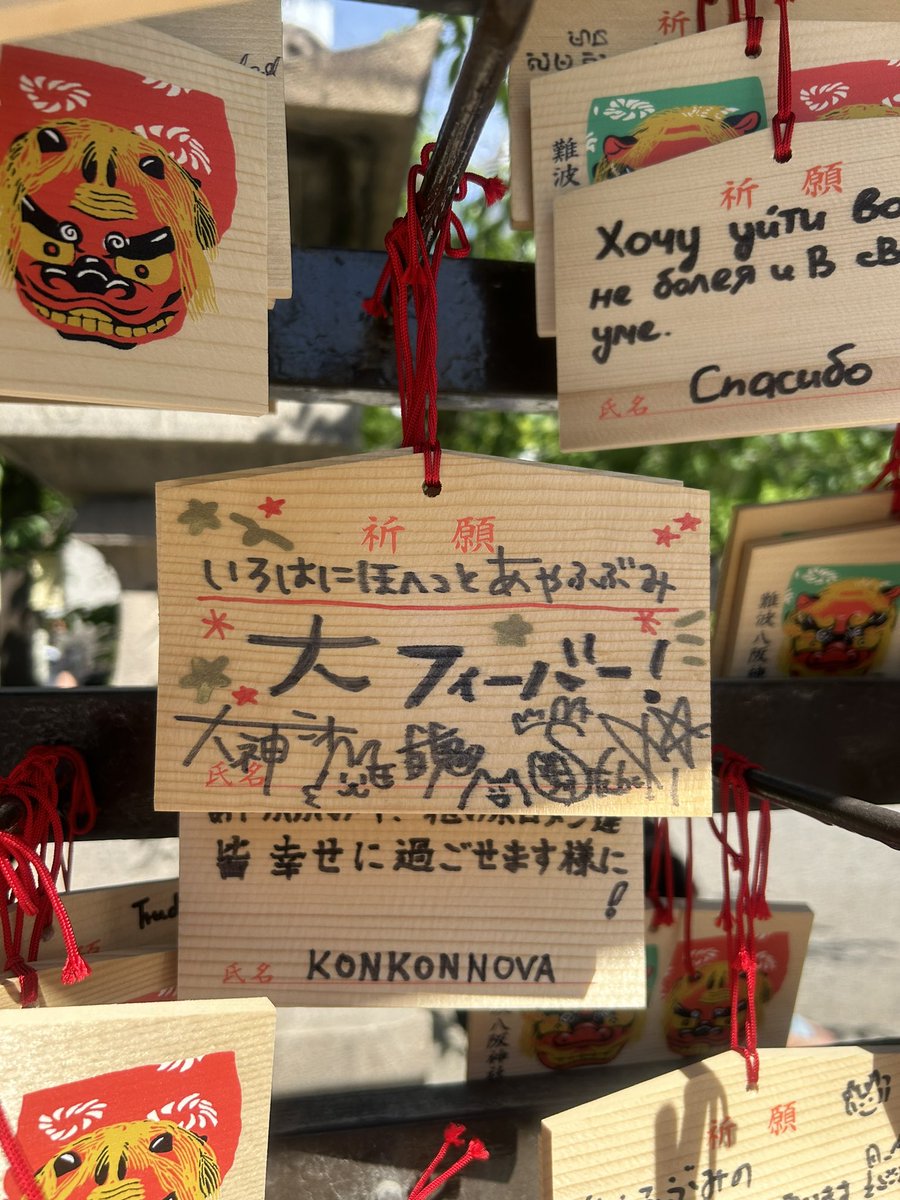 祈
難波
祈 願
Хочу уйти во
не болея и в св
уме.
Спасибо
氏名
祈 願
いろはにほへっとあやふぶみ
大フィーバー!
大神
氏名
難波 八阪神
皆 幸せに過ごせます様に
!
氏名 KONKONNOVA
八阪神社
祈 願
ぶみの
ます